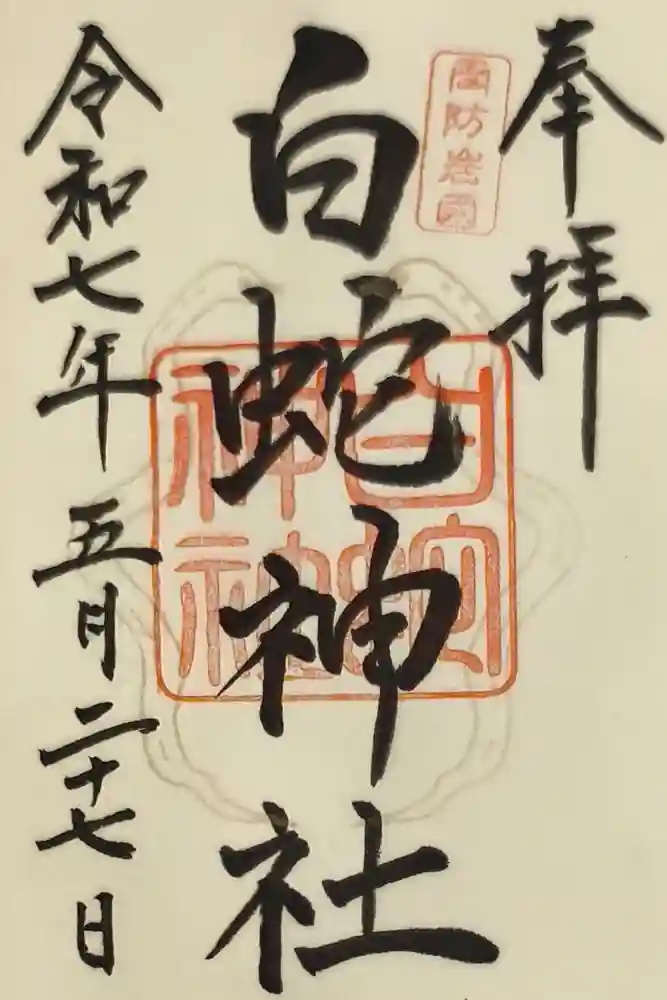 奉拝
周防岩国
白蛇神社
白蛇
神社
令和七年五月二十七日